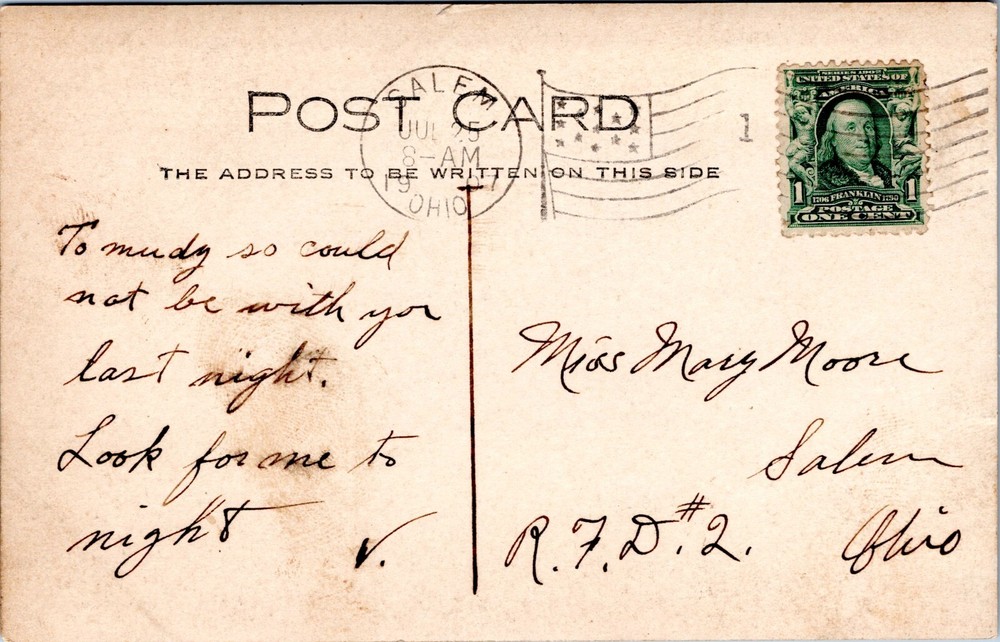 POST CARD
THE ADDRESS TO BE WRITTEN ON THIS SIDE
SALEM
JUL 25
8-AM
1907
OHIO
1
SERIES 1902
UNITED STATES OF
AMERICA
1 1
1706 FRANKLIN 1790
POSTAGE
ONE CENT
To mudy so could
not be with you
last night.
Look for me to
night
V.
Miss Mary Moore
Salem
R.F.D. #2. Ohio